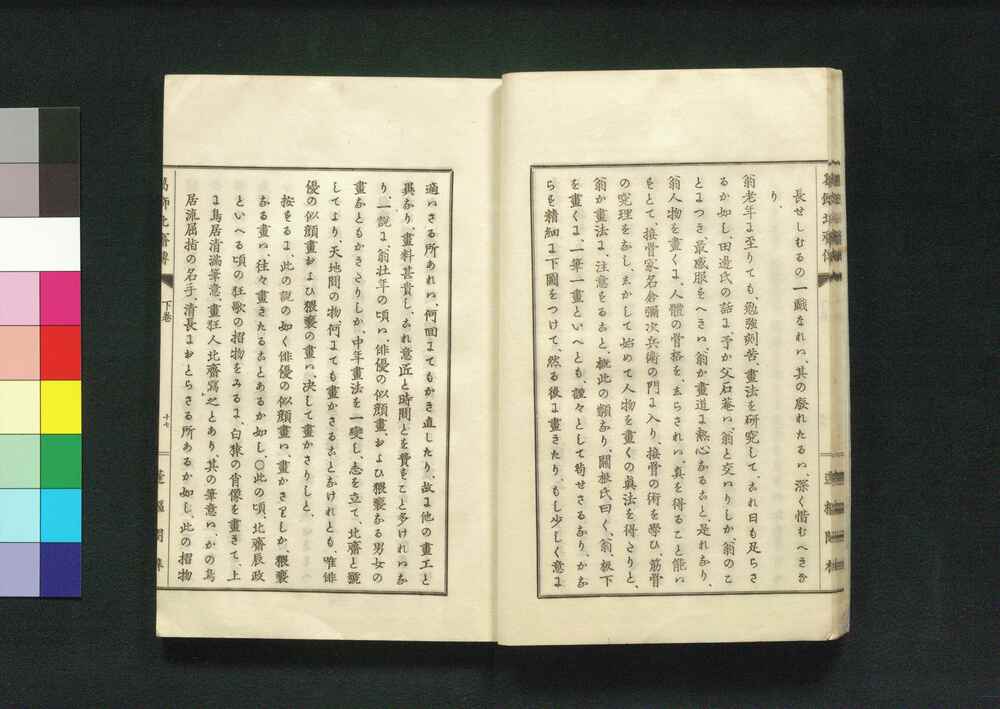 長せしむるの一戲なれハ、其の廢れたるハ、深く惜むへきなり、
翁老年ニ至りても、勉強刻苦、畫法を研究して、なれ日も足らさ
るか如し、田邊氏の話ニ、予か父石菴ハ、翁と交ハりしか、翁のこ
とニつき、最感服をへきハ、翁か畫道ニ熱心なること、是れなり、
翁人物を畫くニ、人體の骨格を、志らされハ、眞を得ること能ハ
をとて、接骨家名倉彌次兵衛の門ニ入り、接骨の術を學ひ、筋骨
の究理をなし、志かして始めて人物を畫くの眞法を得さりと、
翁か畫法ニ、注意をること、概此の類なり、關根氏曰く、翁ハ板下
を畫くニ、一筆一畫といへとも、謹々として苟せさるなり、かな
らを精細ニ下圖をつけて、然る後ニ畫きたり、もし少しく意ニ
適ハさる所あれハ、何回ニてもかき直したり、故ニ他の畫工と
異なり、畫料甚貴し、これ意匠と時間とを費をこと多けれハな
り、一説ニ、翁壯年の頃ハ、俳優の似顔畫、および猥褻なる男女の
畫なともかきさりしか、中年畫法を一變し、志を立て、北齋と號
してより、天地間の物何ニても畫かさることなけれとも、唯俳
優の似顔畫および猥褻の畫ハ、决して畫かさりしと、
按をるニ、此の説の如く俳優の似顔畫ハ、畫かさをしか、猥褻
なる畫ハ、往々畫きたることあるか如し、○此の頃、北齋辰政
といへる頃の狂歌の招物をみるニ、白猿の肖像を畫きて、上
ニ鳥居清滿筆意、畫狂人北齋寫之とあり、其の筆意ハ、かの鳥
居流屈指の名手、清長ニおとらさる所あるか如し、此の招物
葛飾北齋傳
下卷
十七
蓬樞閣梓